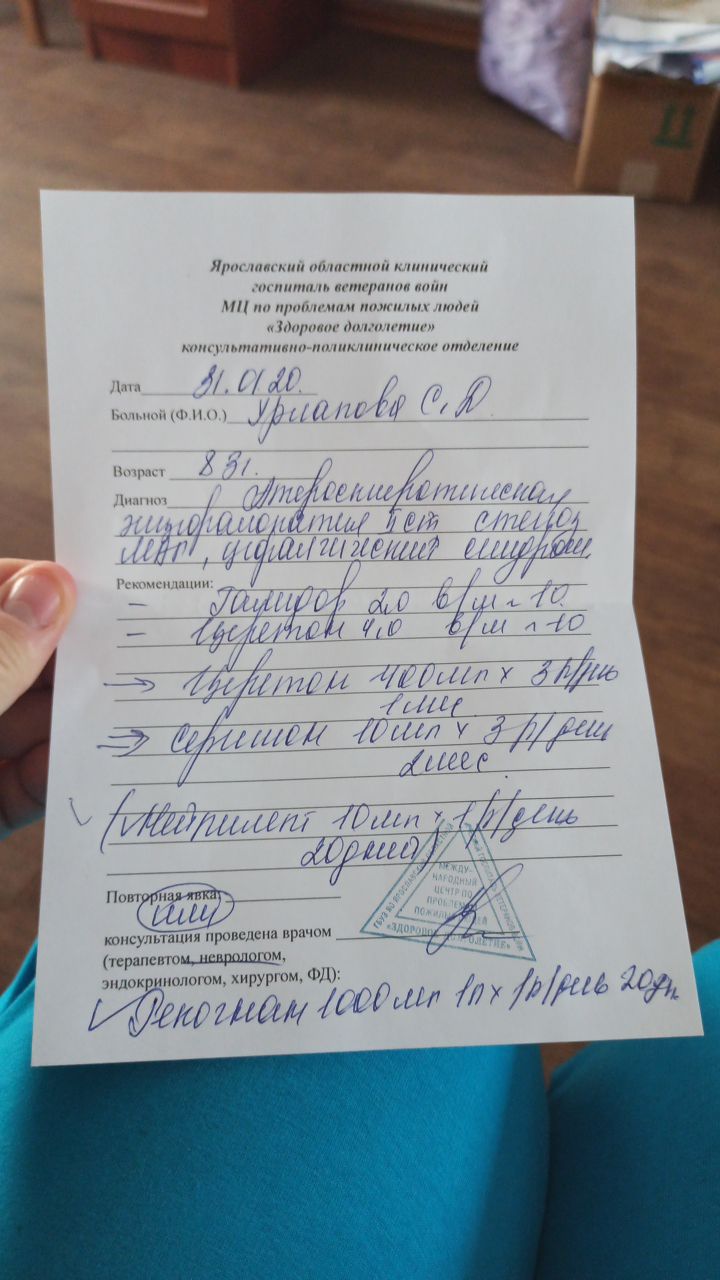 Ярославский областной клинический
госпиталь ветеранов войн
МЦ по проблемам пожилых людей
«Здоровое долголетие»
консультативно-поликлиническое отделение
Дата 31.01.20.
Больной (Ф.И.О.) С. Д.
Возраст 83г.
Диагноз Атеросклеротическая
энцефалопатия ст стеноз
МАГ, цефалгический синдром
Рекомендации:
- Галидор 2,0 в/м ~ 10.
- Церетон 4,0 в/м ~ 10
→ Церетон 400мг х 3 р/день
1 мес
⇒ Сермион 10мг х 3 р/день
2 мес.
✓ (Нейпилепт 10мл х 1 р/день
20 дней)
Повторная явка:
или
консультация проведена врачом
(терапевтом, неврологом,
эндокринологом, хирургом, ФД):
✓ Рекогнан 1000мг 1п х 1р/день 20дн.
МЕЖДУ-
НАРОДНЫЙ
ЦЕНТР ПО
ПРОБЛЕМАМ
ПОЖИЛЫХ ЛЮДЕЙ
«ЗДОРОВОЕ ДОЛГОЛЕТИЕ»